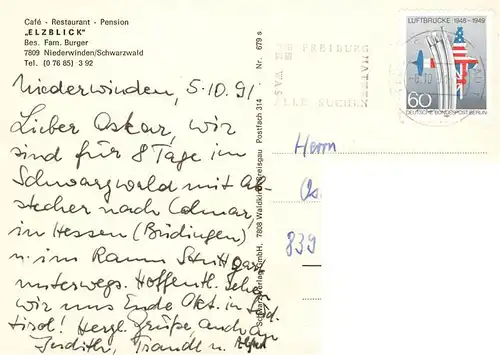 Café - Restaurant - Pension
„ELZBLICK"
Bes. Fam. Burger
7809 Niederwinden/Schwarzwald
Tel. (0 76 85) 3 92
Niederwinden, 5.10.91
Lieber Oskar, wir
sind für 8 Tage im
Schwarzwald mit Ab-
stecher nach Colmar,
in Hessen (Büdingen)
u. im Raum Stuttgart
unterwegs. Hoffentl. sehen
wir uns Ende Okt. in Süd-
tirol! Herzl. Grüße, auch an
Judith, Traudl u.
Schwarz Verlag GmbH. 7808 Waldkirch/Breisgau Postfach 314 Nr. 679 s
FREIBURG
HAT
WAS
ALLE SUCHEN
LUFTBRÜCKE 1948-1949
60
DEUTSCHE BUNDESPOST BERLIN
Herrn
839